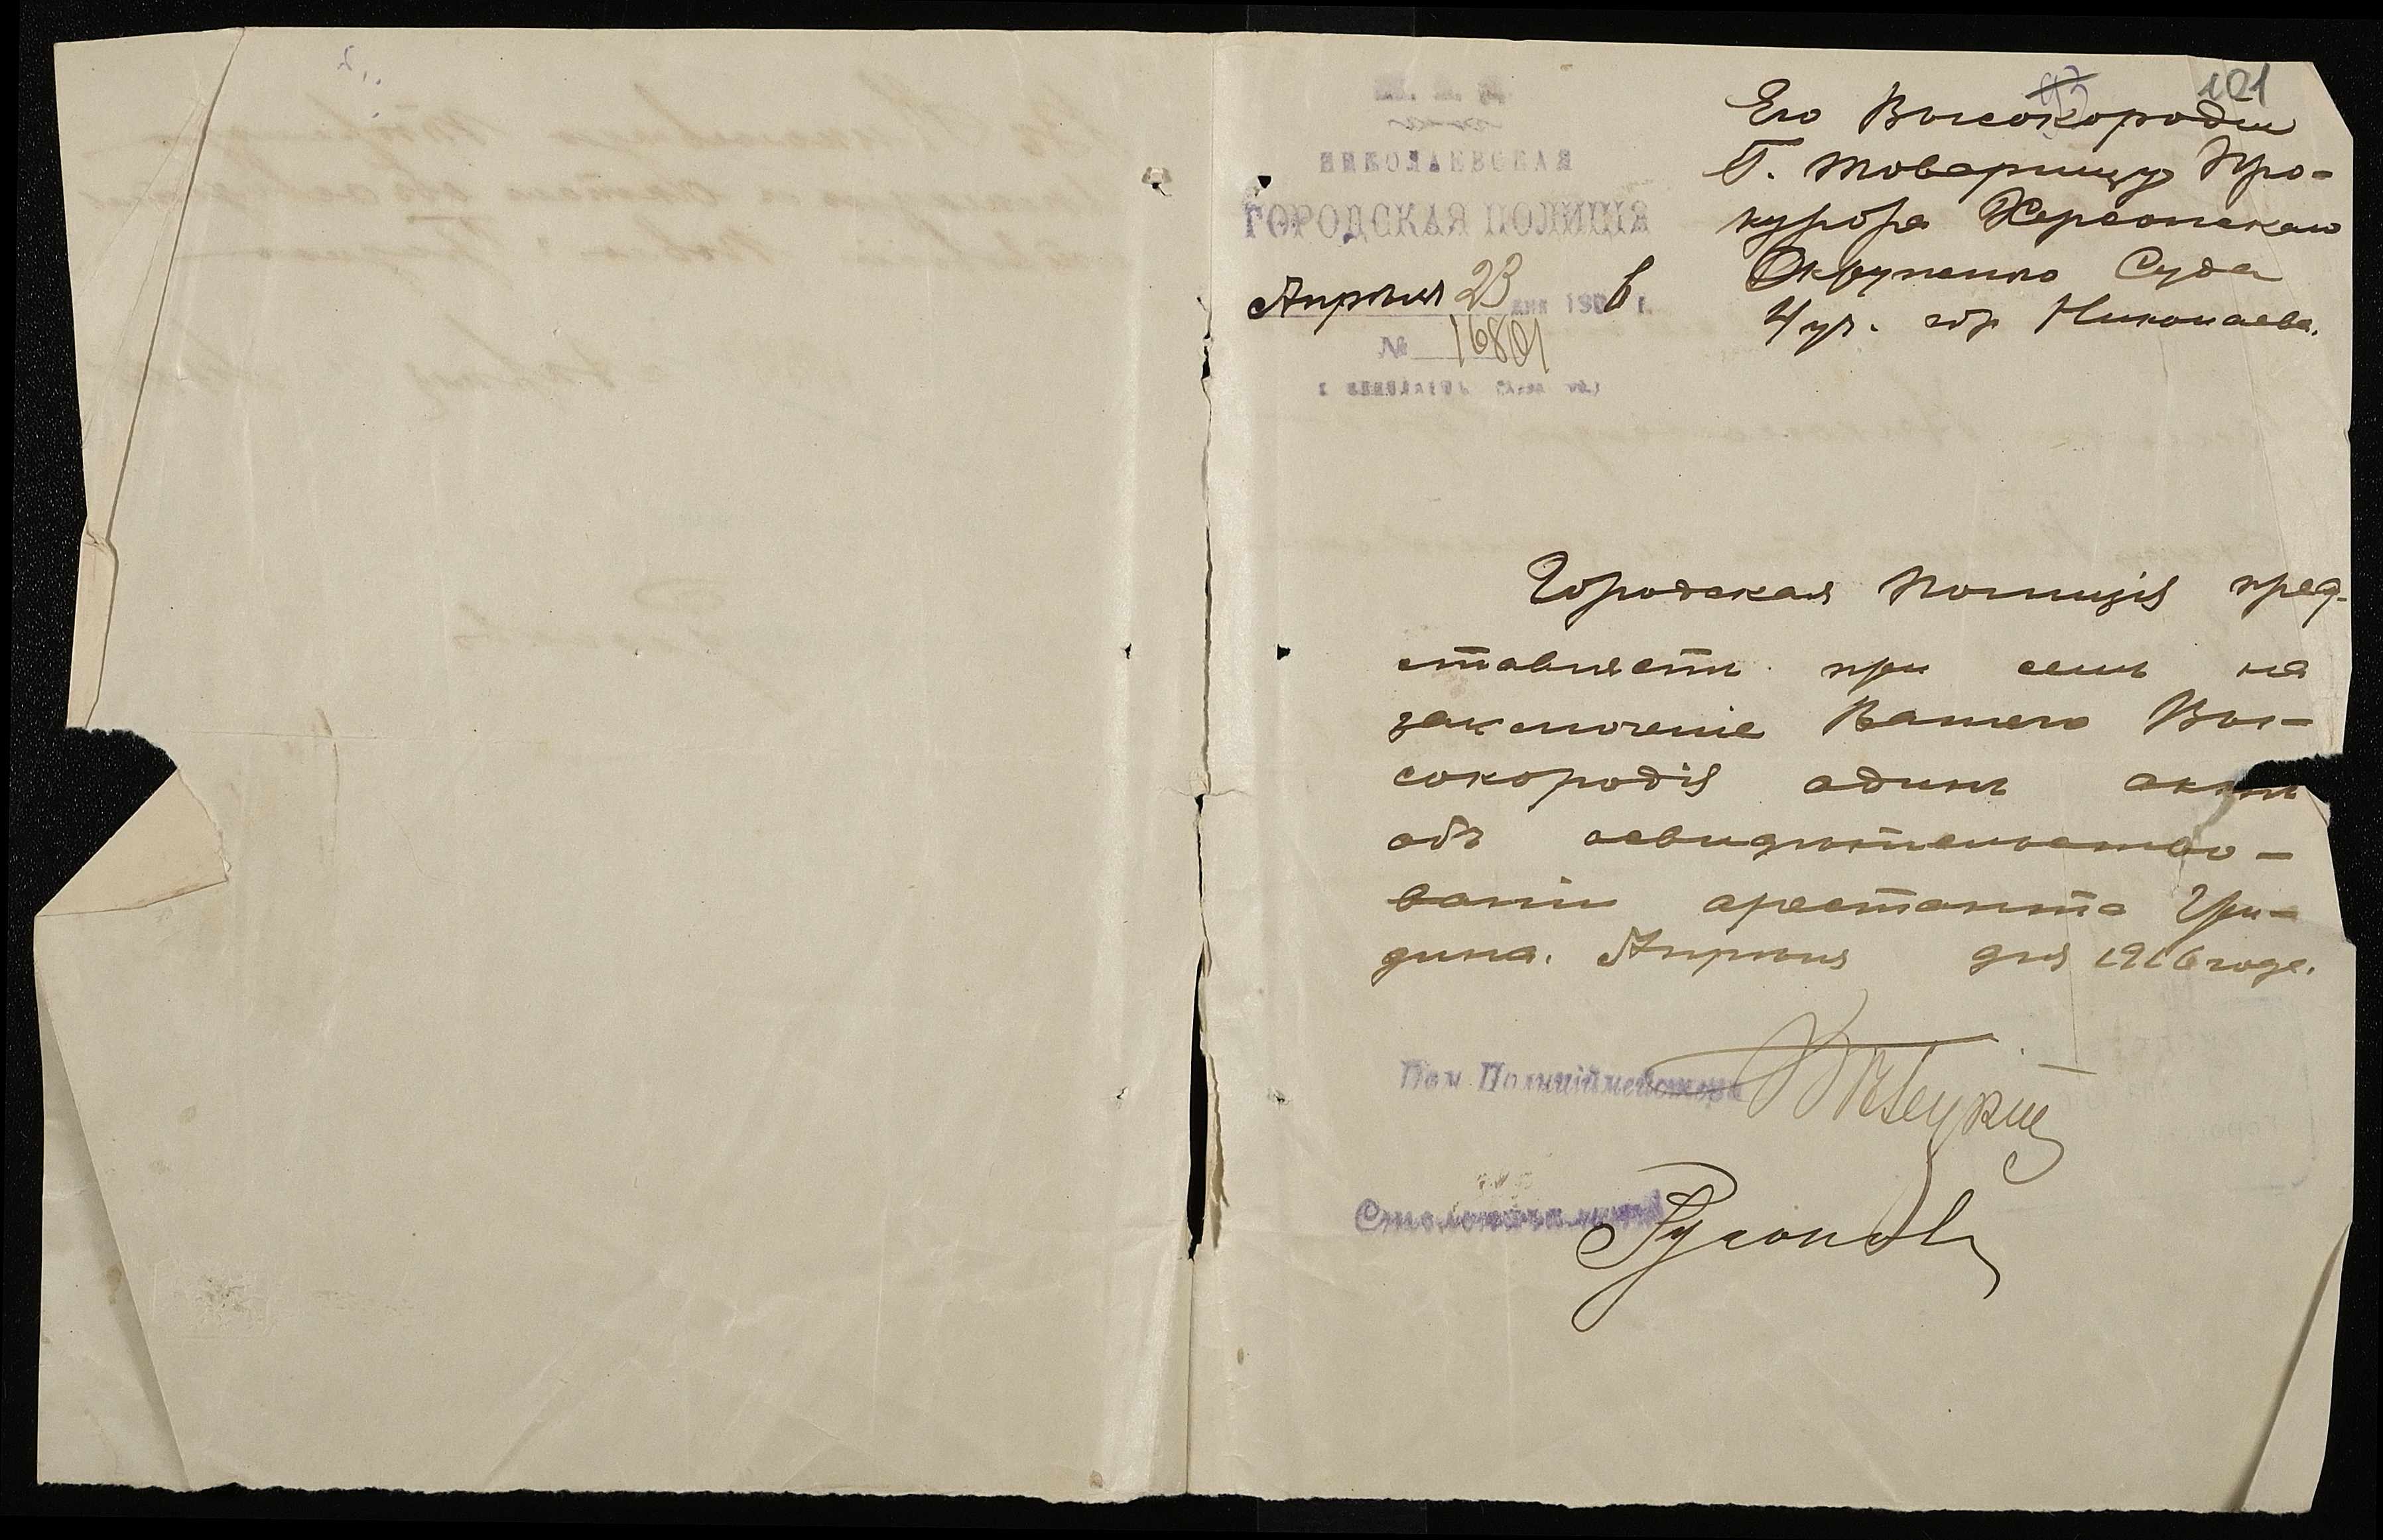 101
НИКОЛАЕВСКАЯ
ГОРОДСКАЯ ПОЛИЦІЯ
Апрѣля 23 дня 190 6 г.
№ 16801
г. НИКОЛАЕВЪ
Его Высокородію
Г. Товарищу Про-
курора Херсонскаго
Окружнаго Суда
4 уч. гор. Николаева.
Городская Полиція пред-
ставляетъ при семъ на
заключеніе Вашего Вы-
сокородія одинъ актъ
объ освидѣтельство-
ваніи арестанта Гри-
дина. Апрѣля дня 1916 года.
Пом Полиціймейстера
Столоначальникъ